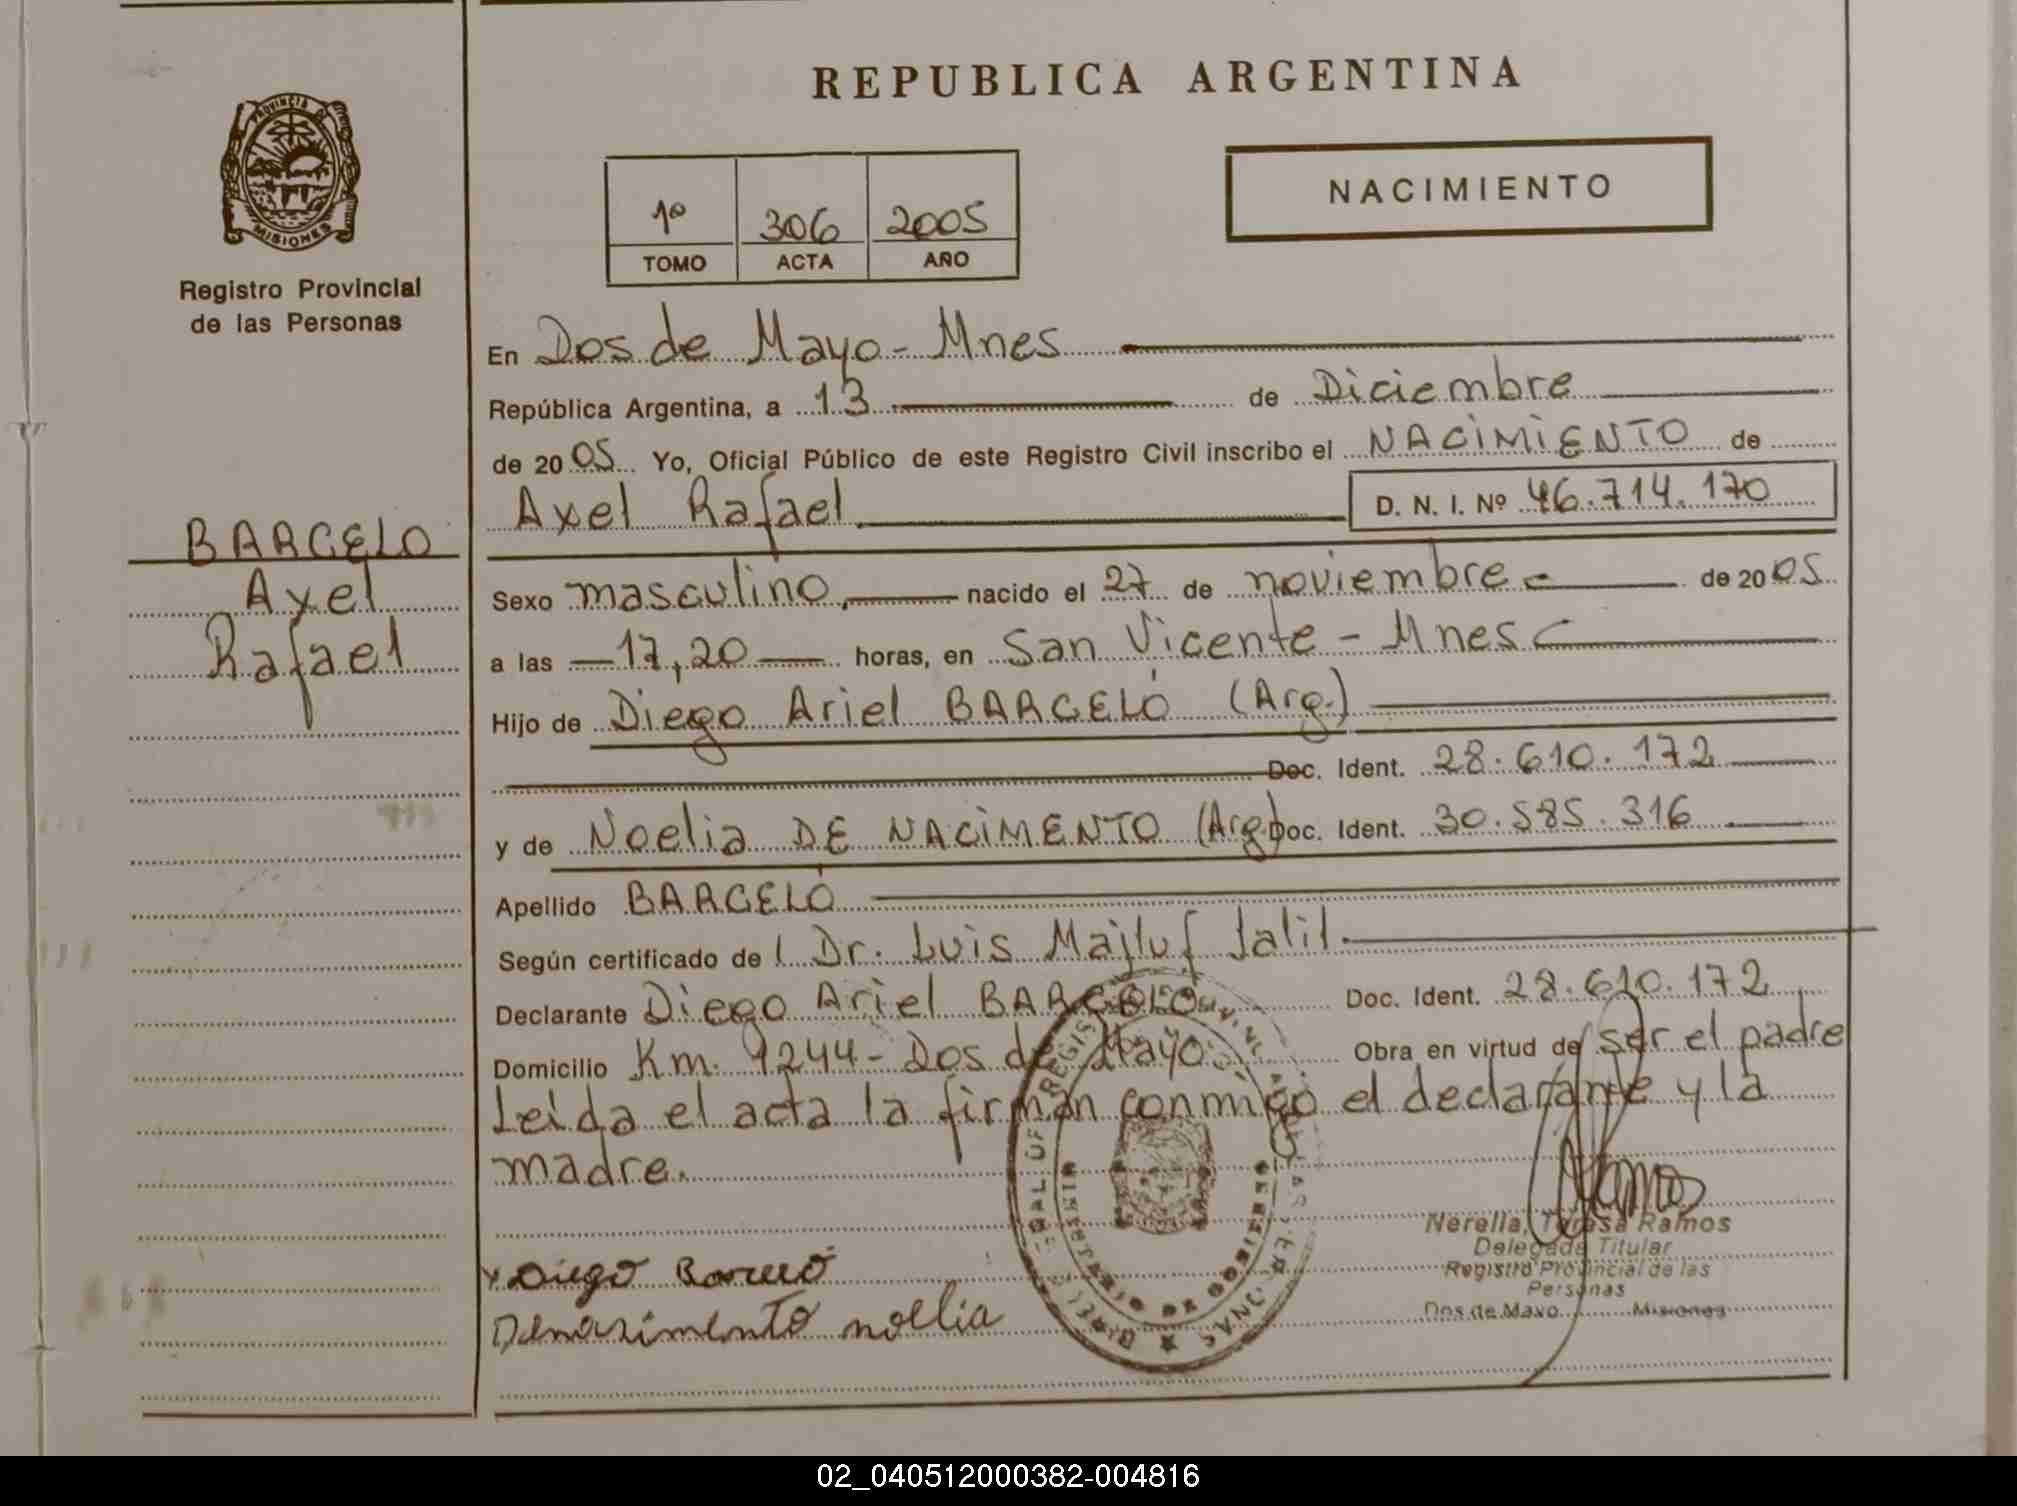 REPUBLICA ARGENTINA
PROVINCIA DE
MISIONES
Registro Provincial
de las Personas
NACIMIENTO
1º 306 2005
TOMO ACTA AÑO
En Dos de Mayo - Mnes
República Argentina, a 13 de Diciembre
de 2005 Yo, Oficial Público de este Registro Civil inscribo el NACIMIENTO de
Axel Rafael D. N. I. Nº 46.714.170
BARCELO
Axel
Rafael
Sexo masculino, nacido el 27 de noviembre de 2005
a las 17,20 horas, en San Vicente - Mnes
Hijo de Diego Ariel BARCELÓ (Arg.)
Doc. Ident. 28.610.172
y de Noelia DE NACIMENTO (Arg.) Doc. Ident. 30.585.316
Apellido BARCELÓ
Según certificado de l Dr. Luis Majluf Jalil.
Declarante Diego Ariel BARCELO Doc. Ident. 28.610.172
Domicilio Km. 1244 - Dos de Mayo Obra en virtud de ser el padre
Leida el acta la firman conmigo el declarante y la
madre.
Diego Barceló
Denasimento noelia
MINISTERIO DE GOBIERNO
Nerella, Teresa Ramos
Delegada Titular
Registro Provincial de las
Personas
Dos de Mayo Misiones
02_040512000382-004816